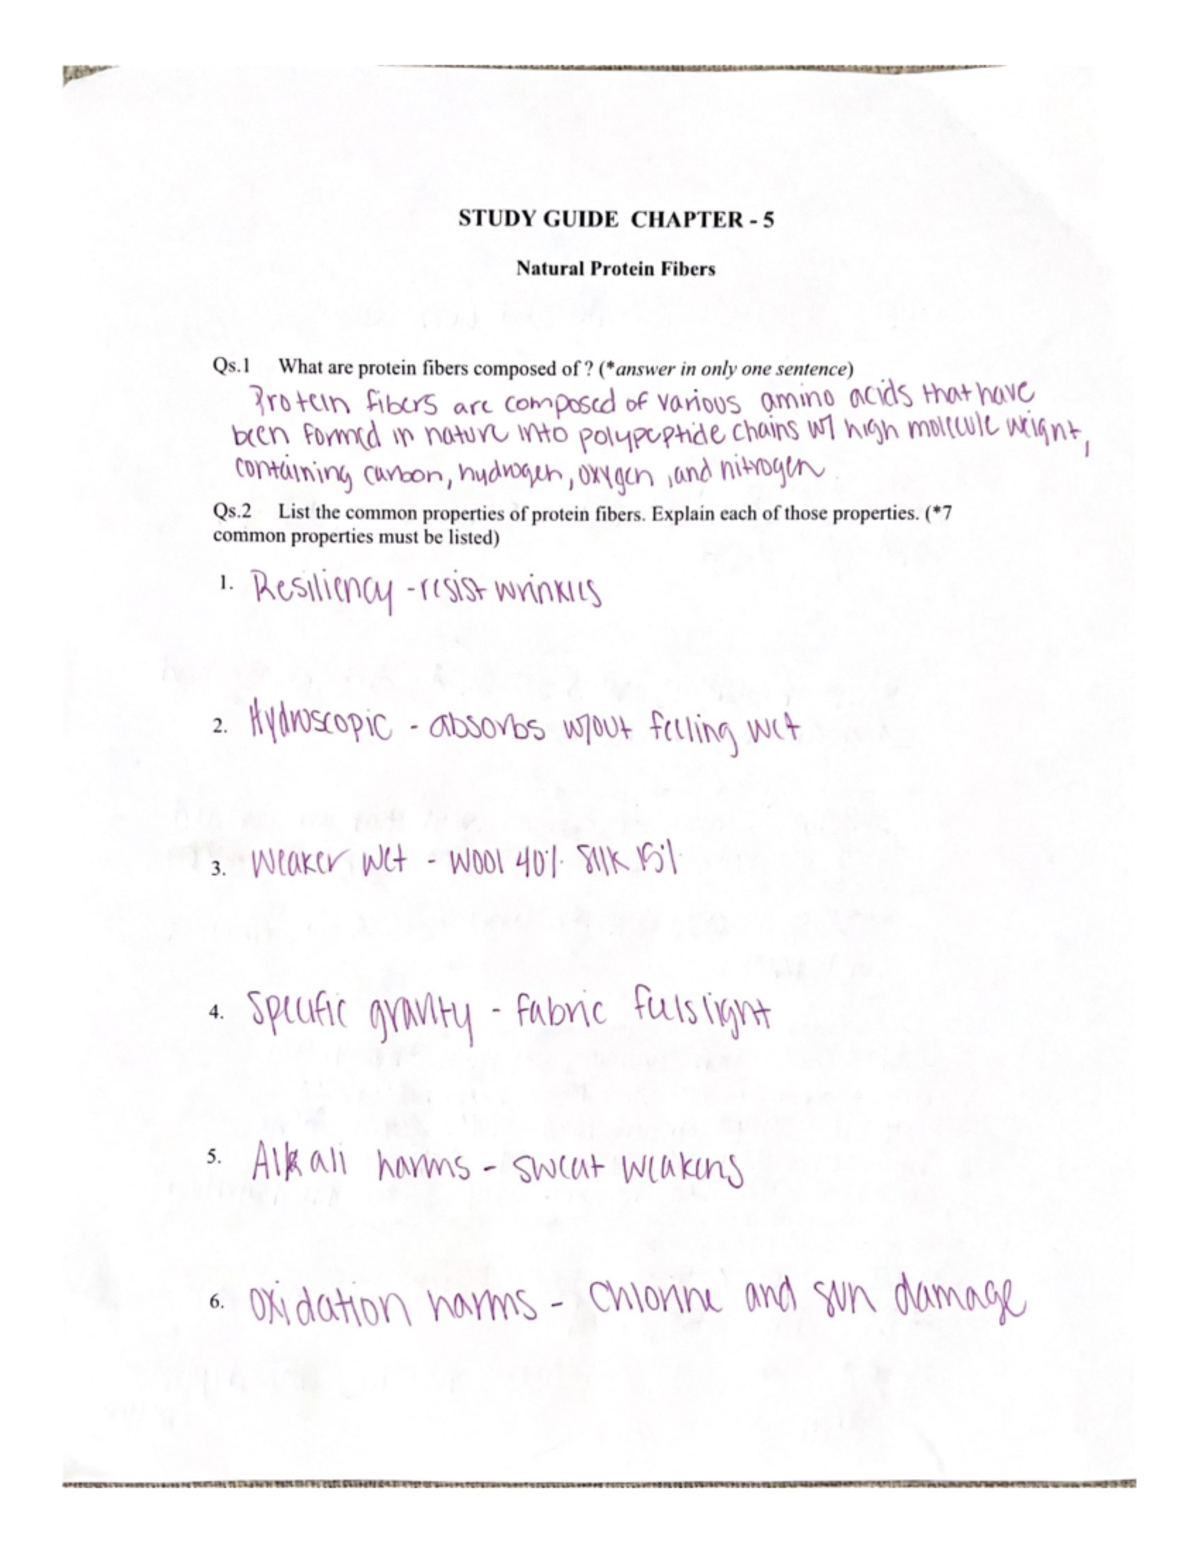 STUDY GUIDE CHAPTER - 5
Natural Protein Fibers
Qs.1 What are protein fibers composed of ? (*answer in only one sentence)
Protein fibers are composed of various amino acids that have
been formed in nature into polypeptide chains w/ high molecule weight,
containing carbon, hydrogen, oxygen, and nitrogen
Qs.2 List the common properties of protein fibers. Explain each of those properties. (*7
common properties must be listed)
1. Resiliency - resist wrinkles
2. Hydroscopic - absorbs w/out feeling wet
3. Weaker wet - wool 40% silk 15%
4. Specific gravity - fabric feels light
5. Alkali harms - sweat weakens
6. Oxidation harms - Chlorine and sun damage